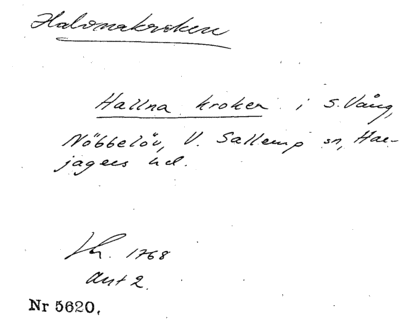 Halvmakroken
Hallna kroken i S. Vång,
Nöbbelöv, V. Sallerup sn, Har-
jagers hd.
1768
akt 2.
Nr 5620,